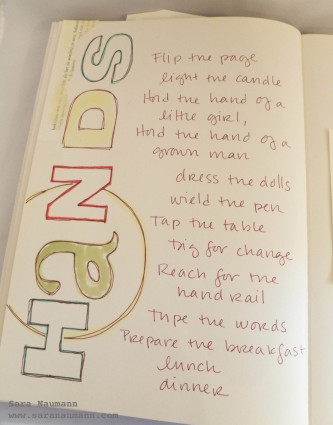 HaNDS
Flip the page
light the candle
Hold the hand of a
little girl,
Hold the hand of a
grown man
dress the dolls
wield the pen
Tap the table
Dig for change
Reach for the
handrail
Type the words
Prepare the breakfast
lunch
dinner
Sara Naumann
www.saranaumann.com